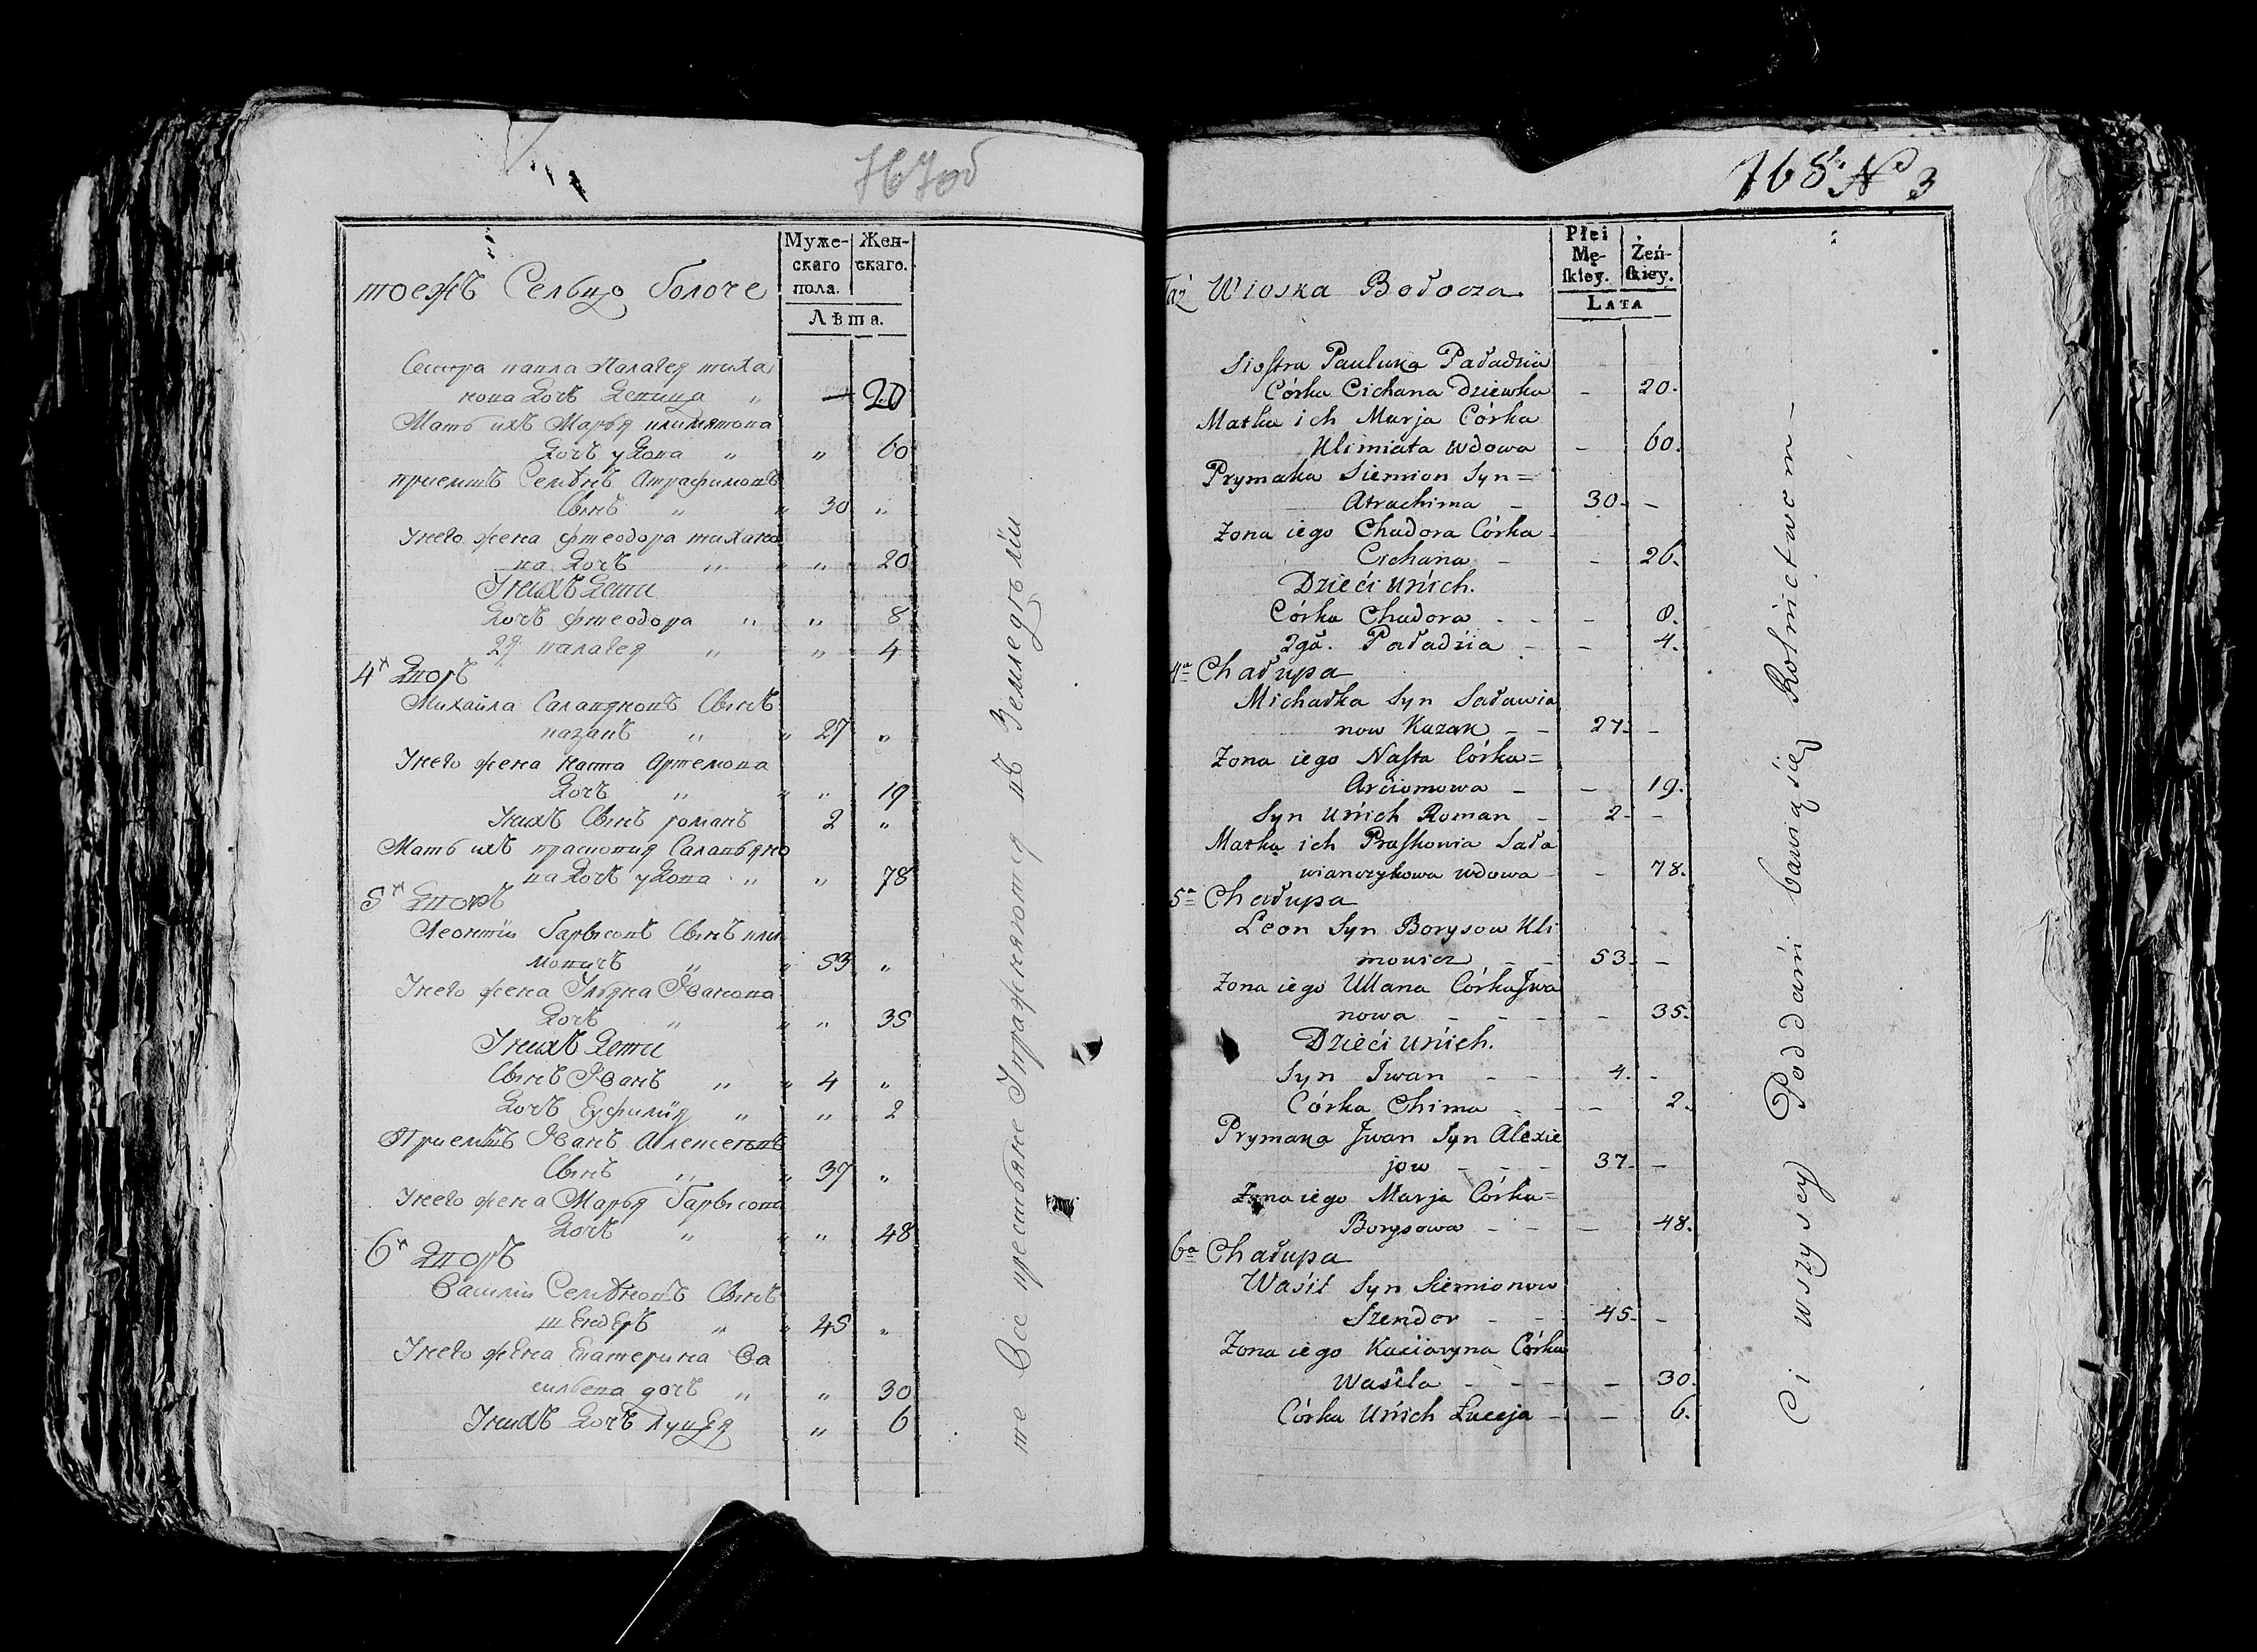 767об
Муже-
скаго
пола.
Жен-
скаго.
Лѣта.
тоежъ Сельцо болоче
Сестра павла Палагея тиха
нова дочь девица " — 20
Мать ихъ Марья климятова
дочь удова " " 60
приемшъ Семѣнъ Атрафимовъ
Сынъ " " 30 "
Унево жена фтеодора тихано
ва дочь " " " 20
Унихъ дети
дочь фтеодора " " 8
2я палагея " " 4
4х дворъ
Михайла Салавяновъ Сынъ
казакъ " " 27 "
Унево жена наста Артемова
дочь " " " 19
Унихъ Сынъ романъ 2 "
Мать ихъ прасковия Салавьяно
ва дочь удова " " 78
5х дворъ
Леонтии барысовъ Сынъ кли
мовичъ " " 53 "
Унево жена Ульяна Иванова
дочь " " " 35
Унихъ дети
Сынъ Иванъ " " 4 "
дочь Еуфимия " " 2
Приемшъ Иванъ Алексеевъ
Сынъ " " 37 "
Унево жена Марья барысова
дочь " " " 48
6х дворъ
Василии Семѣновъ Сынъ
шендеръ " " 45 "
Унево жена Екатерина Ва
сильева дочь " " 30
Унихъ дочь луцея " 6
те Все крестьяне Упражняются въ Земледѣлии
768 N 3
Płci
Mę-
skiey.
Żeń-
skiey.
Lata
Taż Wioska Bołocza
Siostra Pauluka Paładzia
Córka Cichana Dziewka - 20.
Matka ich Marja Córka
Klimiata wdowa - 60.
Prymaka Siemion Syn=
Atrachima - 30. -
Żona iego Chadora Córka
Cichana - - 26.
Dzieći unich.
Córka Chadora - - - 8.
2ga. Paładzia - - 4.
4a Chałupa
Michałka Syn Saławia
now Kazak - - 27. -
Żona iego Nasta Córka=
Arciomowa - - 19.
Syn unich Roman - 2. -
Matka ich Praskowia Sała
wianczykowa wdowa - - 78.
5a Chałupa
Leon Syn Borysow Kli
mowicz - - 53. -
Żona iego Ullana Córka Jwa
nowa - - - - 35.
Dzieći unich.
Syn Jwan - - 4. -
Córka Chima - - - 2.
Prymaka Jwan Syn Alexie
jow - - - 37. -
Żona iego Marja Córka=
Borysowa - - - 48.
6a Chałupa
Waśil Syn Siemionow
Szendor - - 45. -
Żona iego Kaciaryna Córka
Waśila - - - - 30.
Córka unich Łuceja - - 6.
Ci wszyscy Poddani bawią się Rolnictwom -